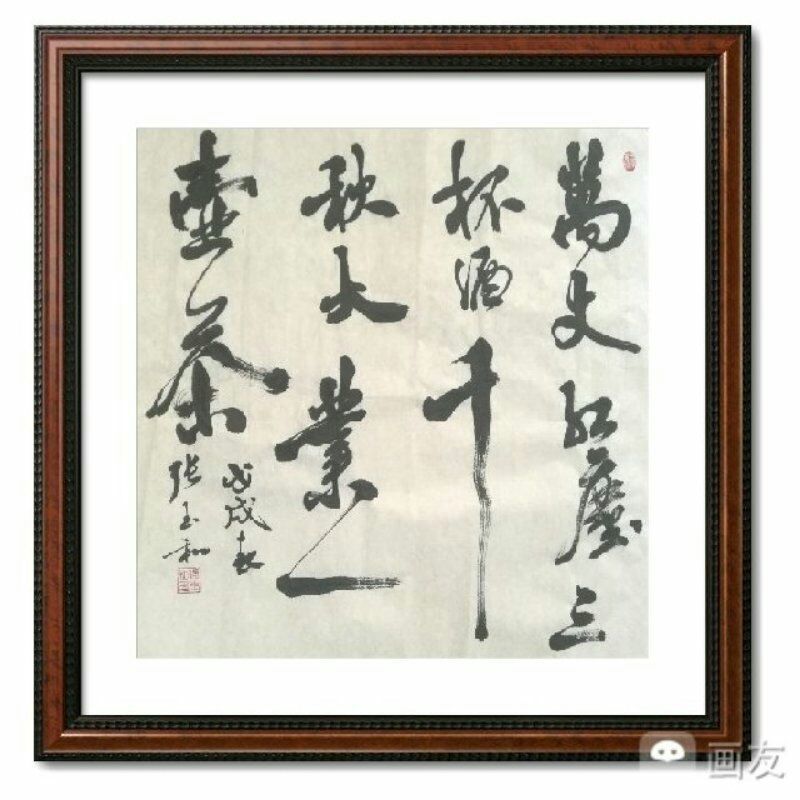 萬丈红塵三
杯酒千
秋大業一
壺茶
戊戌春
张玉和
画友